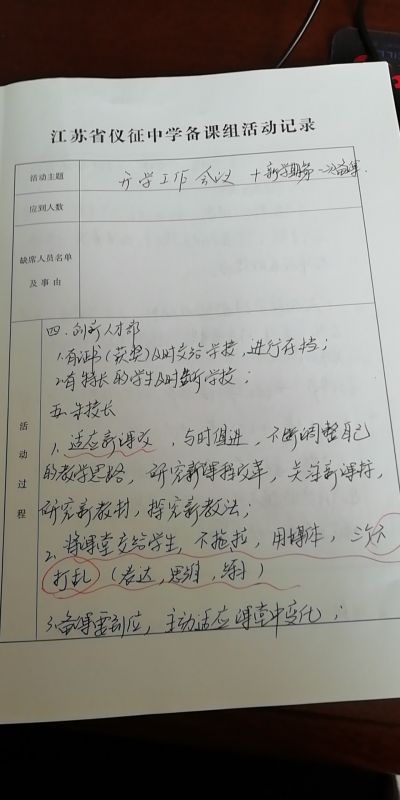 江苏省仪征中学备课组活动记录
活动主题 开学工作会议 + 新学期第一次备课.
应到人数
缺席人员名单
及事由
活动过程
四.创新人才部
1.有证书(获奖)及时交给学校,进行存档;
2.有特长的学生及时 学校;
五.朱校长
1.适应新课改,与时俱进,不断调整自己
的教学思路,研究新课程改革,关注新课标,
研究新教材,探究新教法;
2.将课堂交给学生,不拖拉,用媒体,三个不
打扎(表达,思维, )
3.备课要到位,主动适应课堂中变化;